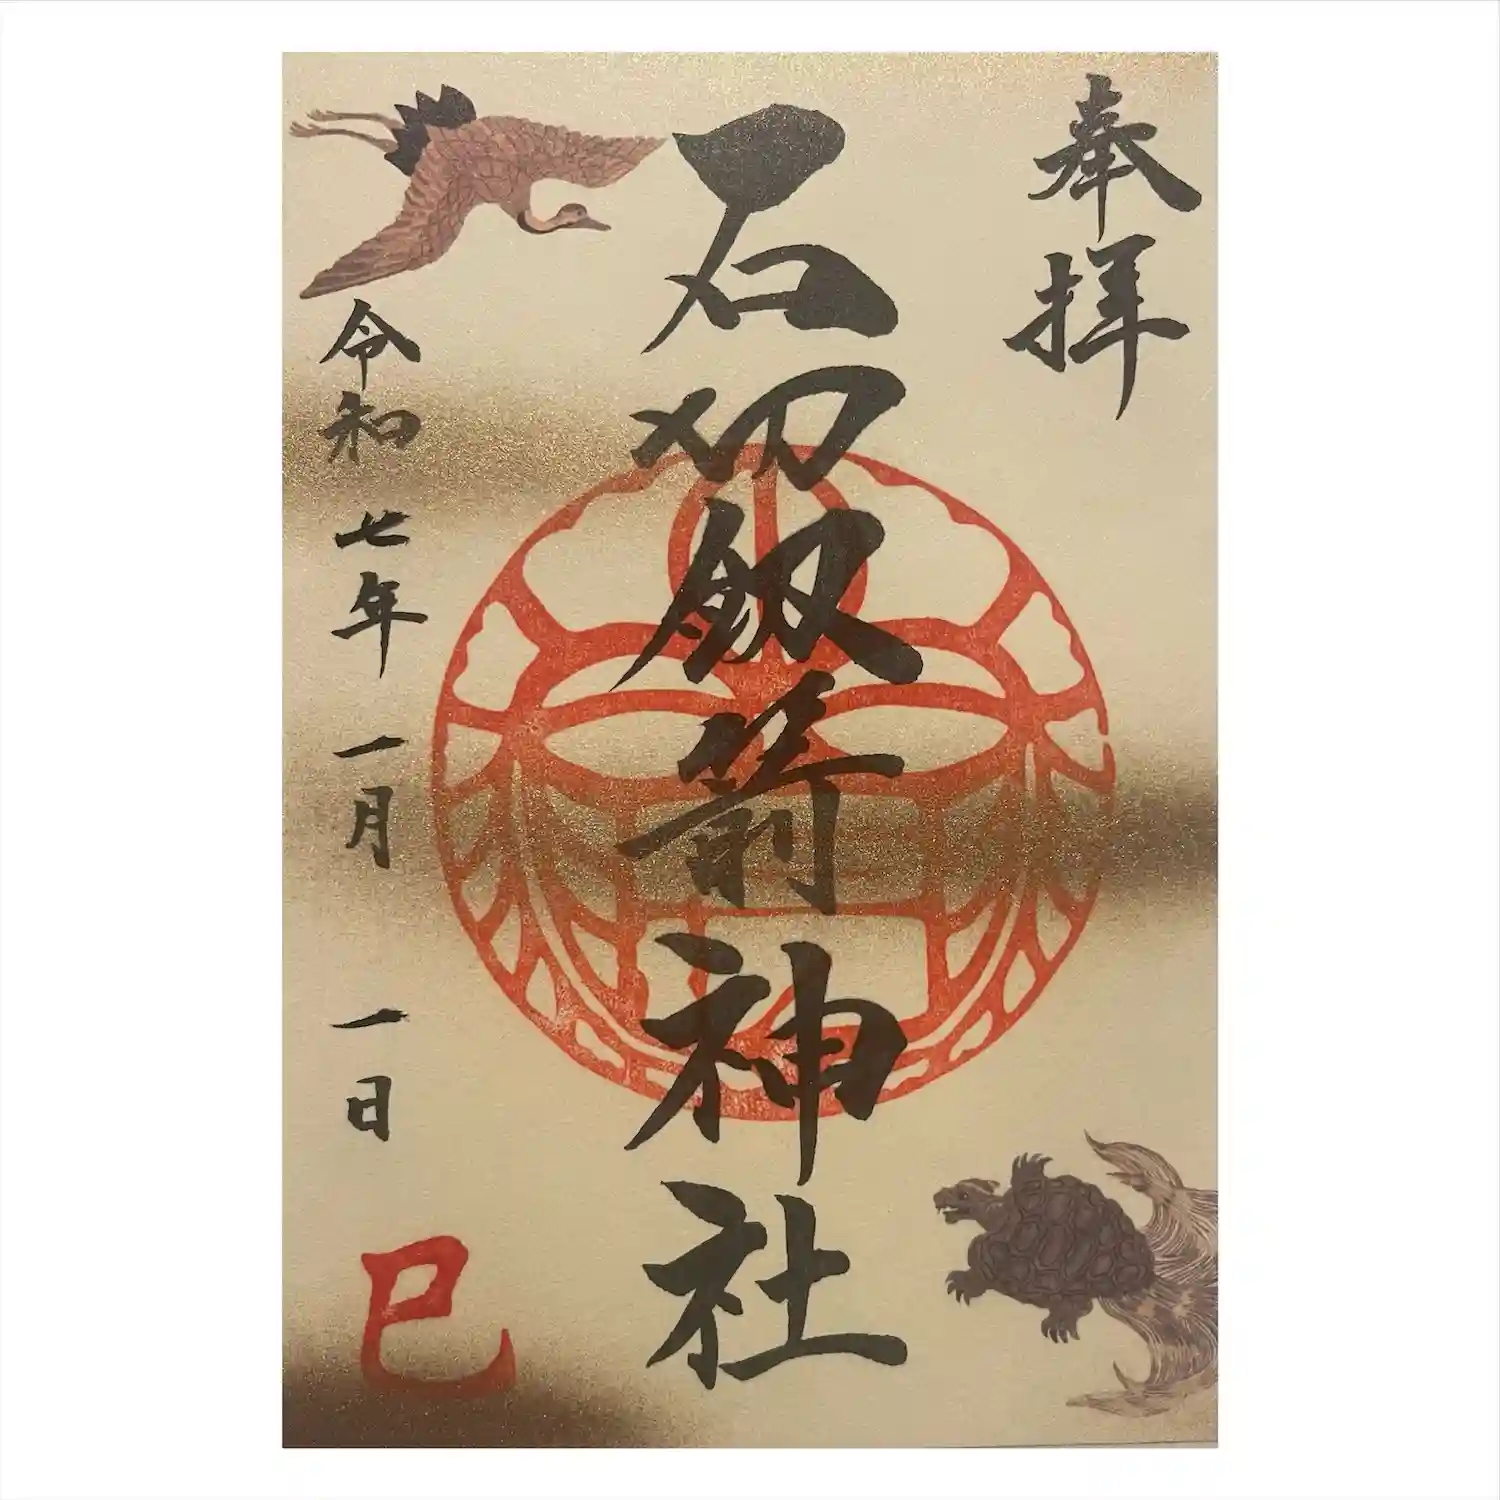 奉拝
石切劔箭神社
令和七年一月一日
巳